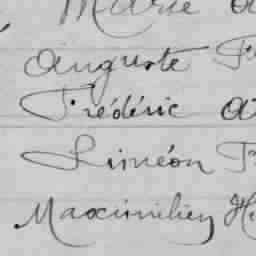 Marie a
Auguste F
Frédéric a
Siméon F
Maximilien He